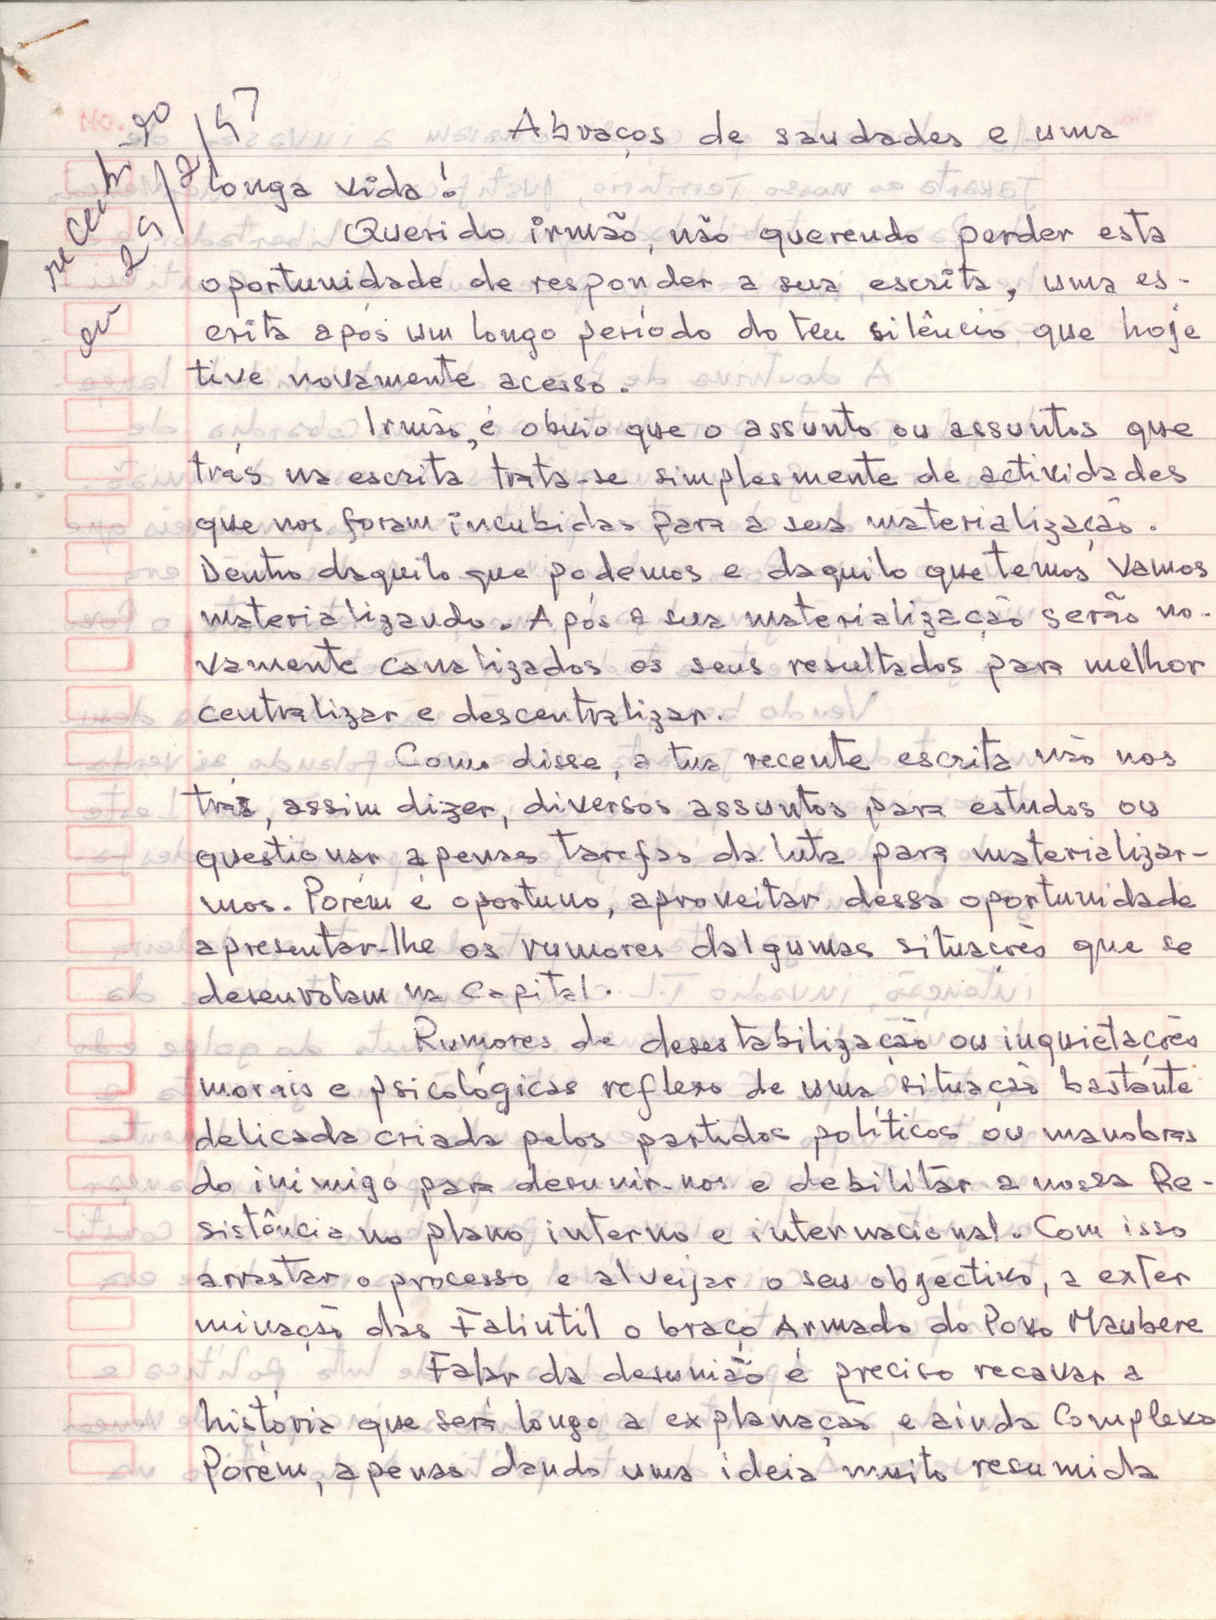 Abraços de saudades e uma
longa vida!
Querido irmão, não querendo perder esta
oportunidade de responder a sua escrita, uma es-
crita após um longo período do teu silêncio que hoje
tive novamente acesso.
Irmão, é obvio que o assunto ou assuntos que
trás na escrita trata-se simplesmente de actividades
que nos foram incubidas para a sua materialização.
Dentro daquilo que podemos e daquilo que temos vamos
materializando. Após a sua materialização serão no-
vamente canalizados os seus resultados para melhor
centralizar e descentralizar.
Como disse, a tua recente escrita não nos
trás, assim dizer, diversos assuntos para estudos ou
questionar apenas tarefas da luta para materializar-
mos. Porém é oportuno, aproveitar dessa oportunidade
apresentar-lhe os rumores dalgumas situações que se
desenrolam na Capital.
Rumores de desestabilização ou inquietações
morais e psicológicas reflexo de uma situação bastante
delicada criada pelos partidos políticos ou manobras
do inimigo para desunir-nos e debilitar a nossa Re-
sistência no plano interno e internacional. Com isso
arrastar o processo e alveijar o seu objectivo, a exter
minação das Falintil o braço Armado do Povo Maubere
Falar da desunião é preciso recavar a
história que será longo a explanação e ainda Complexo
Porém, apenas dando uma ideia muito resumida
em 29/2/97